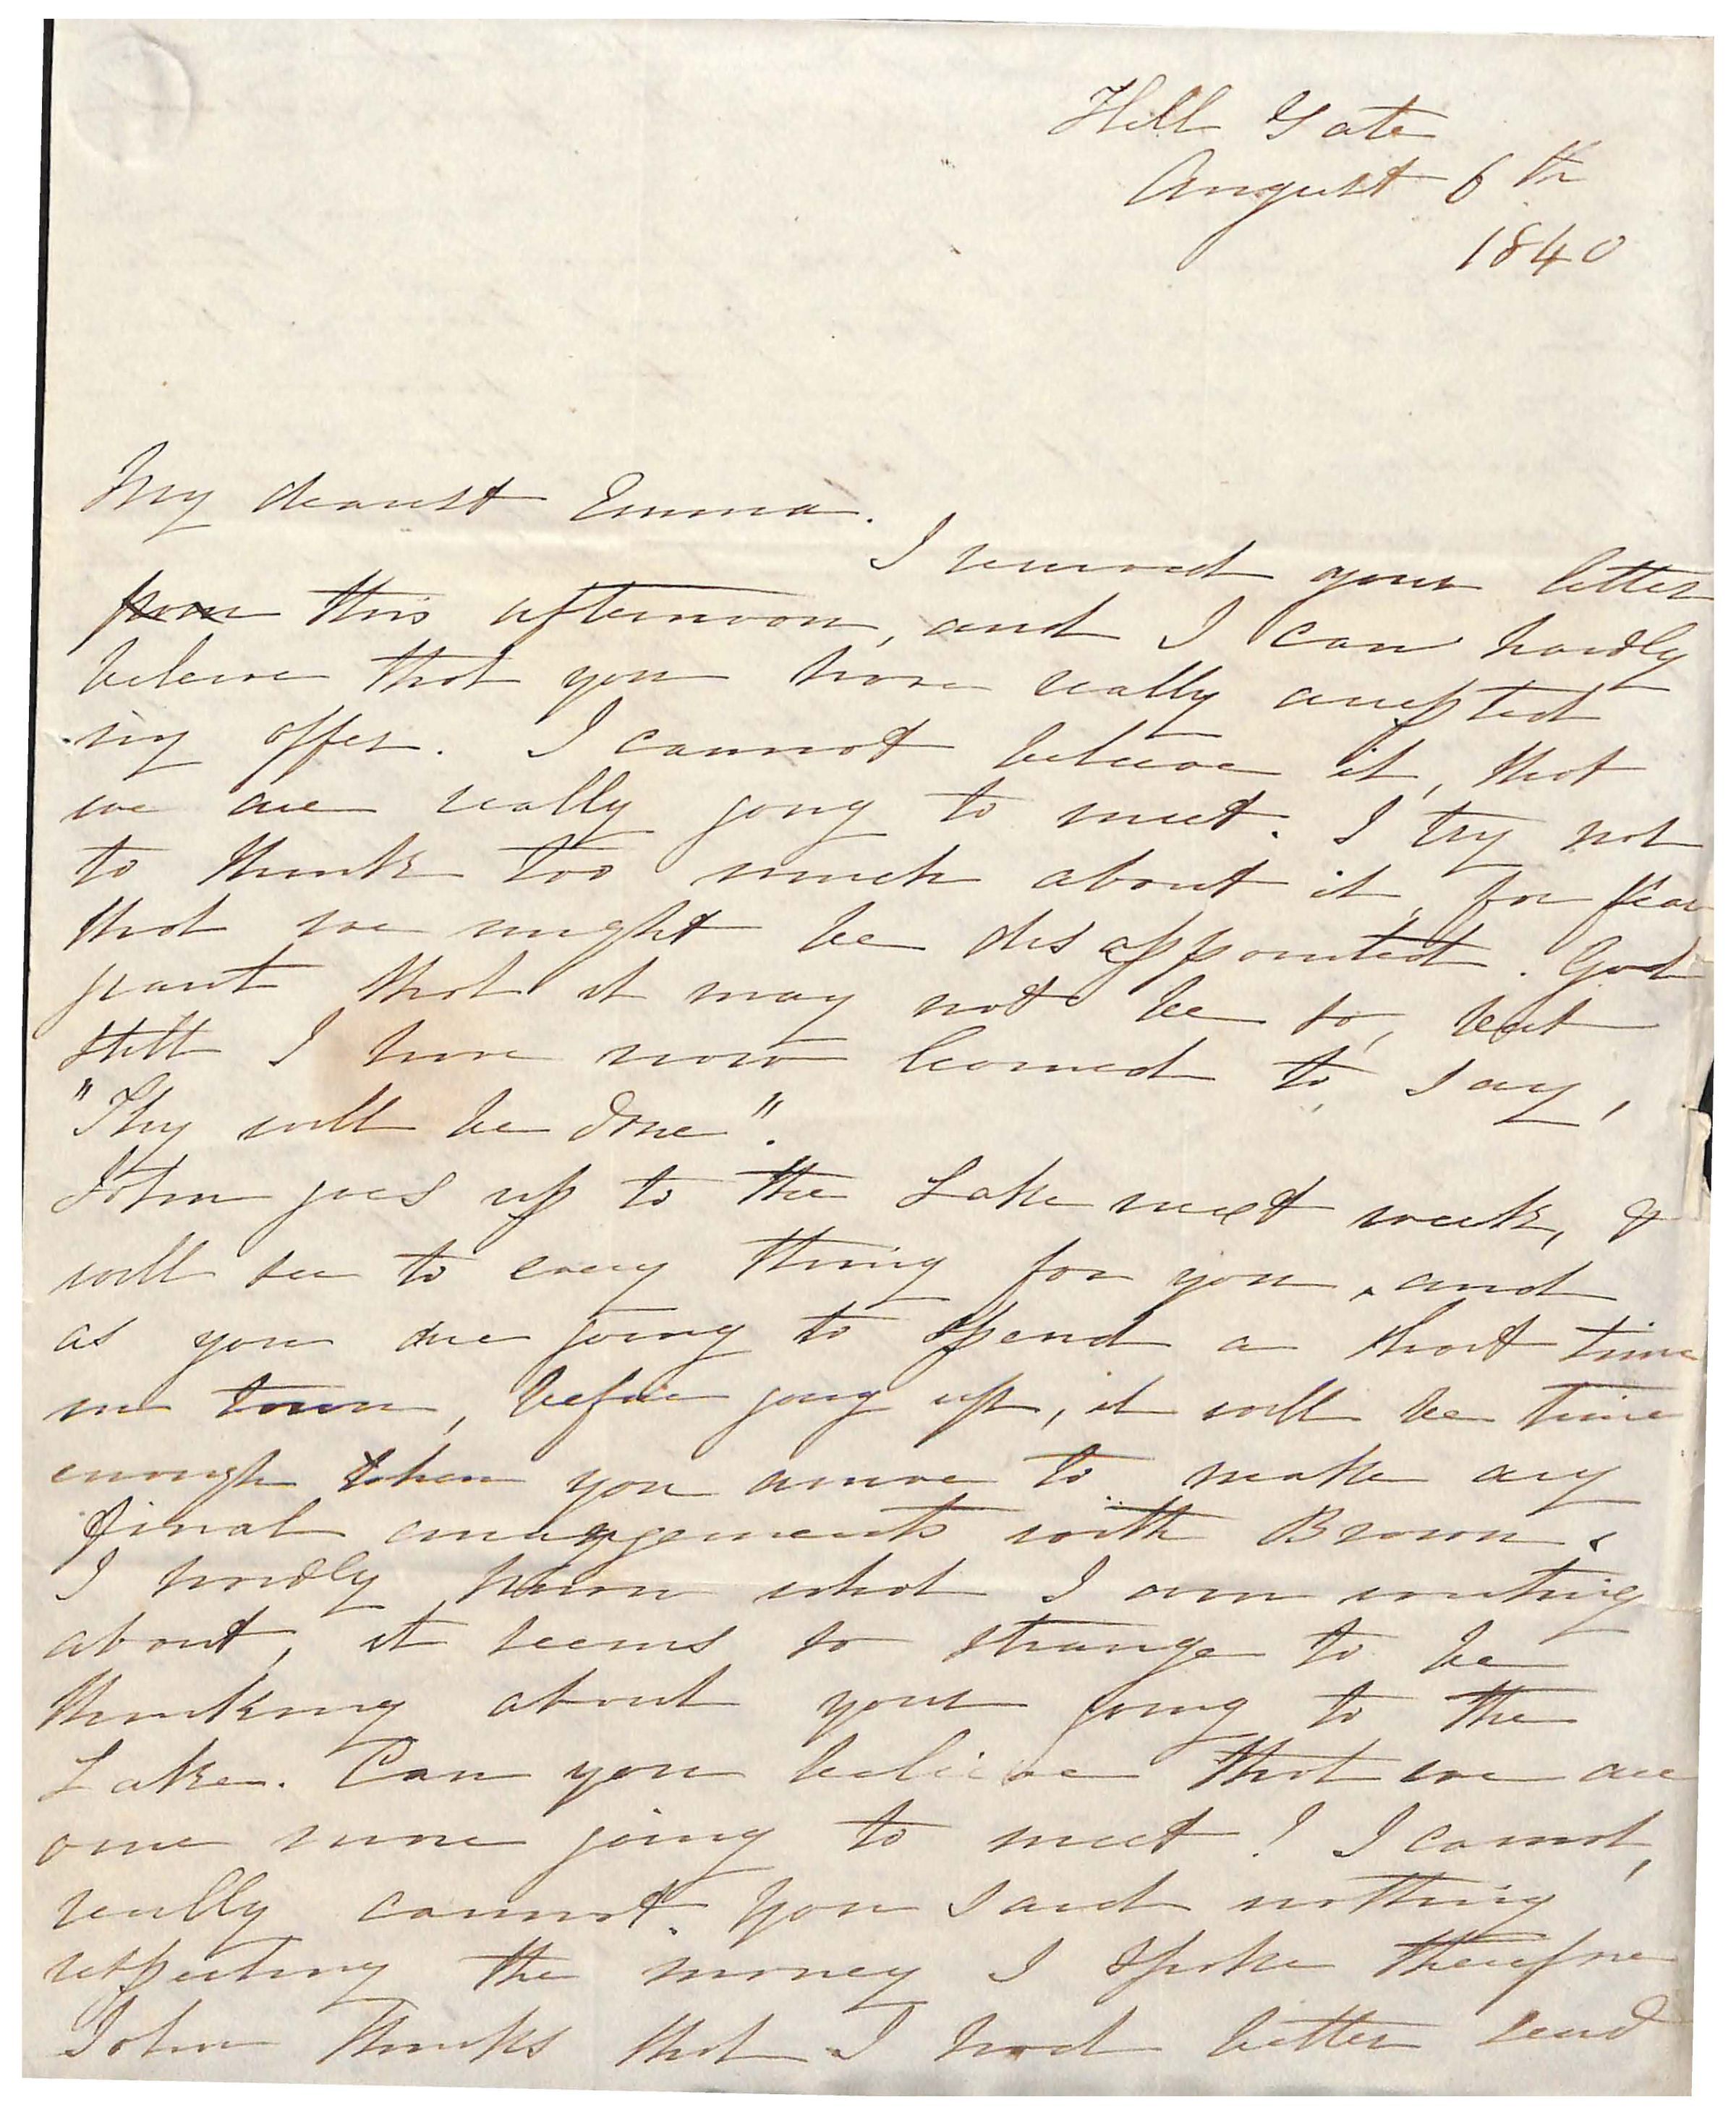 Hell Gate
August 6th
1840
My dearest Emma.
I received your letter
from this afternoon, and I can hardly
beleive that you have really accepted
my offer. I cannot beleive it, that
we are really going to meet. I try not
to think too much about it, for fear
that we might be disappointed. God
grant that it may not be so, but
still I have now learned to say,
"Thy will be done".
John goes up to the Lake next week, &
will see to every thing for you, and
as you are going to spend a short time
in town, before going up, it will be time
enough when you arrive to make any
final arrangements with Brown.
I hardly know what I am writing
about, it seems so strange to be
thinking about your going to the
Lake. Can you believe that we are
once more going to meet! I cannot,
really cannot. You said nothing
respecting the money I spoke therefore
John thinks that I had better send